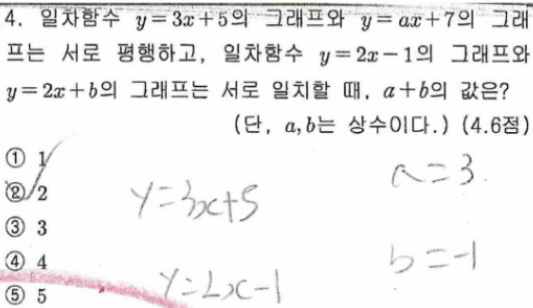 4. 일차함수 y=3x+5의 그래프와 y=ax+7의 그래
프는 서로 평행하고, 일차함수 y=2x-1의 그래프와
y=2x+b의 그래프는 서로 일치할 때, a+b의 값은?
(단, a,b는 상수이다.) (4.6점)
① 1
② 2
③ 3
④ 4
⑤ 5
a=3.
y=3x+5
b=-1
y=2x-1